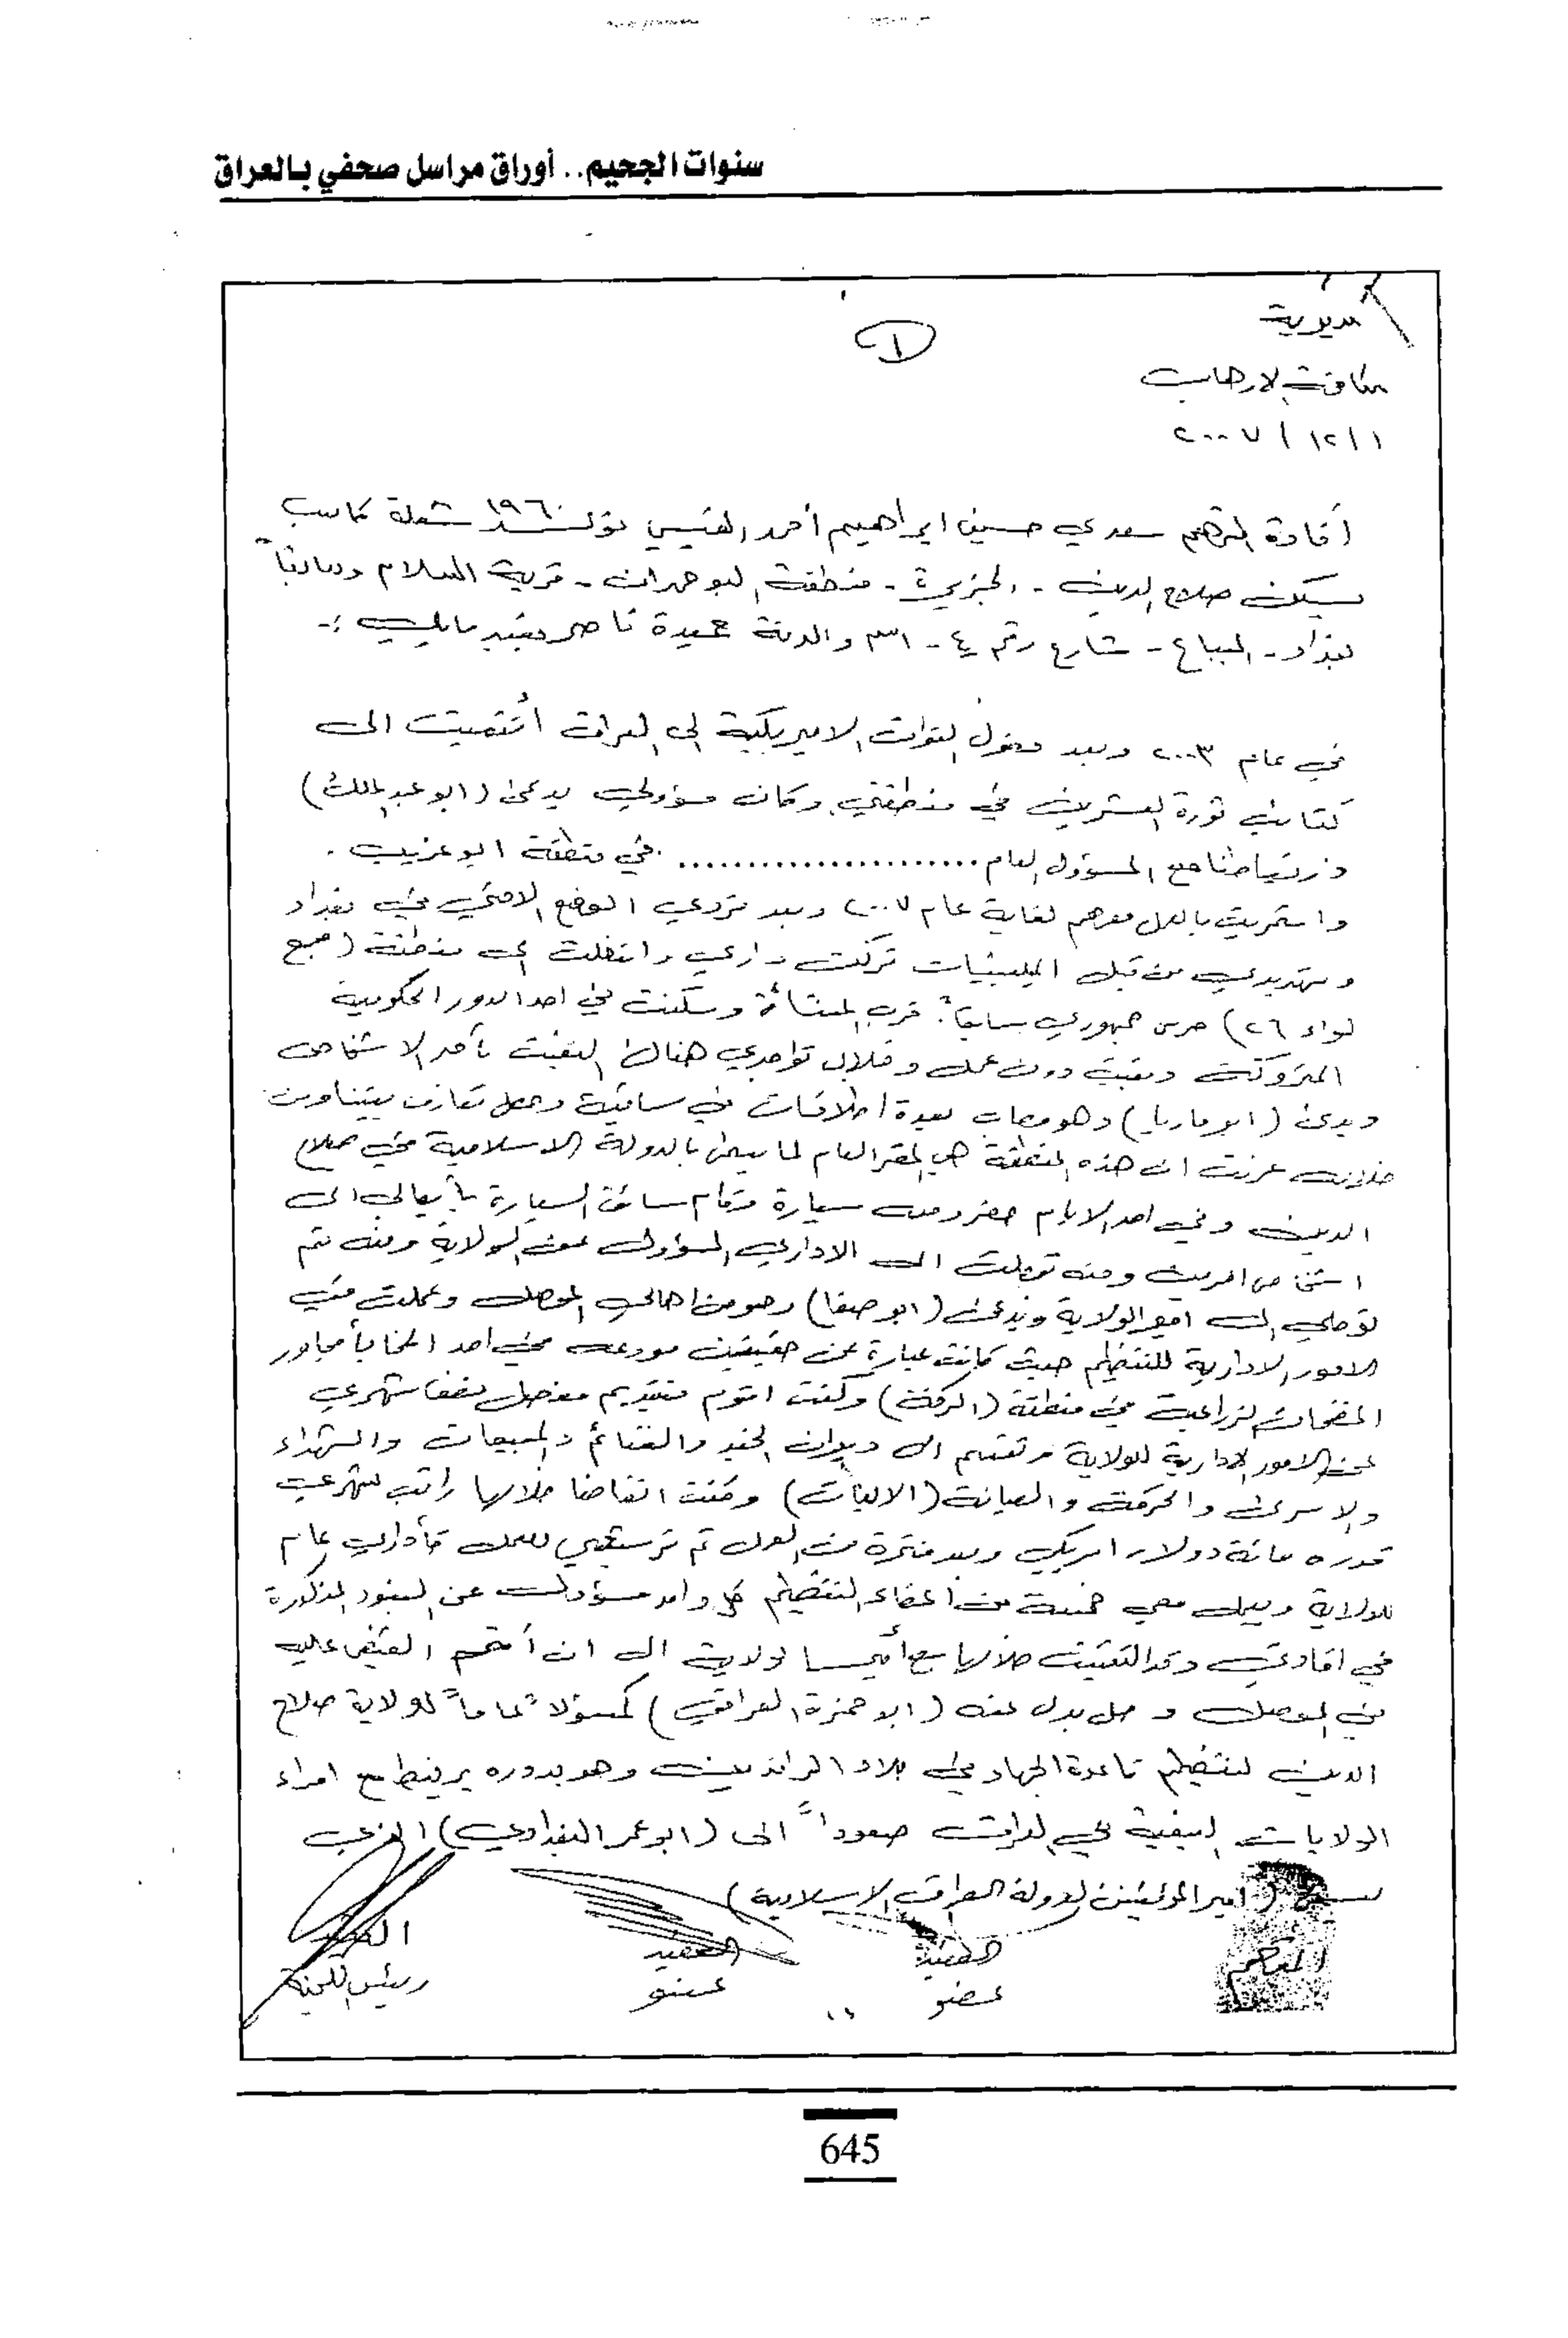 سنوات الجحيم.. أوراق مراسل صحفي بالعراق
مديرية
١
مكافحة الارهاب
١ / ١٢ / ٢٠٠٧
أفادة المتهم سعدي حسين ابراهيم أحمد القيسي تولد ١٩٦٠ شغلة كاسب
يسكن صلاح الدين - الجزيرة - منطقة البو حمدان - قرية السلام وسابقاً
بغداد - البياع - شارع رقم ٤ - ٣١ والدتة حميدة ناصر يفيد مايلي :-
في عام ٢٠٠٣ وبعد دخول القوات الاميريكية الى العراق أنتميت الى
كتائب ثورة العشرين في منطقتي وكان مسؤولي يدعى (ابو عبد الملك)
وارتباطنا مع المسؤول العام ...................... في منطقة ابو غريب .
واستمريت بالعمل معهم لغاية عام ٢٠٠٧ وبعد تردي الوضع الامني في بغداد
وتهديدي من قبل الميليشيات تركت داري وانتقلت الى منطقة (مجمع
لواء ٢٦) حرس جمهوري سابقاً قرب المنشأة وسكنت في احد الدور الحكومية
المتروكة وبقيت دون عمل وخلال تواجدي هناك التقيت بأحد الاشخاص
ويدعى (ابو ماريا) وهو مصاب بعدة اطلاقات في ساقية وحصل تعارف بيننا ومن
خلاله عرفت ان هذه المنطقة هي المقر العام لما يسمى بالدولة الاسلامية في صلاح
الدين وفي احد الايام حضر ومعه سيارة وقام سائق السيارة بأيصالي الى
اشخاص اخرين ومنه توصلت الى الاداري المسؤول عن الولاية ومنه تم
توصلي الى امير الولاية ويدعى (ابو صفا) وهو من اهالي الموصل وعملت في
الامور الادارية للتنظيم حيث كانت عبارة عن حقيبتين مودعه في احد المخابأ مجاور
المضخات الزراعية في منطقة (الركة) وكنت اقوم بتقديم مفصل نصف شهري
عن الامور الادارية للولاية وتقسم الى ديوان الجند والغنائم والمبيعات والشهداء
والاسرى والحركة والصيانة (الاليات) وكنت اتقاضا خلالها راتب شهري
قدره مائة دولار امريكي وبعد فترة من العمل تم ترشيحي للعمل كأداري عام
للولاية ويعمل معي خمسة من أعضاء التنظيم كل واحد مسؤول عن البنود المذكورة
في افادتي وقد التقيت خلالها مع أمير الولاية الى ان أتم القبض عليه
في الموصل وحل بدل عنه (ابو حمزة العراقي) كمسؤلاً عاماً لولاية صلاح
الدين لتنظيم قاعدة الجهاد في بلاد الرافدين وهو بدوره يرتبط مع امراء
الولايات البقية في العراق صعوداً الى (ابو عمر البغدادي) الذي
يسمى (امير المؤمنين لدولة العراق الاسلامية)
المتهم العقيد العقيد العميد
عضو عضو رئيس اللجنة
645